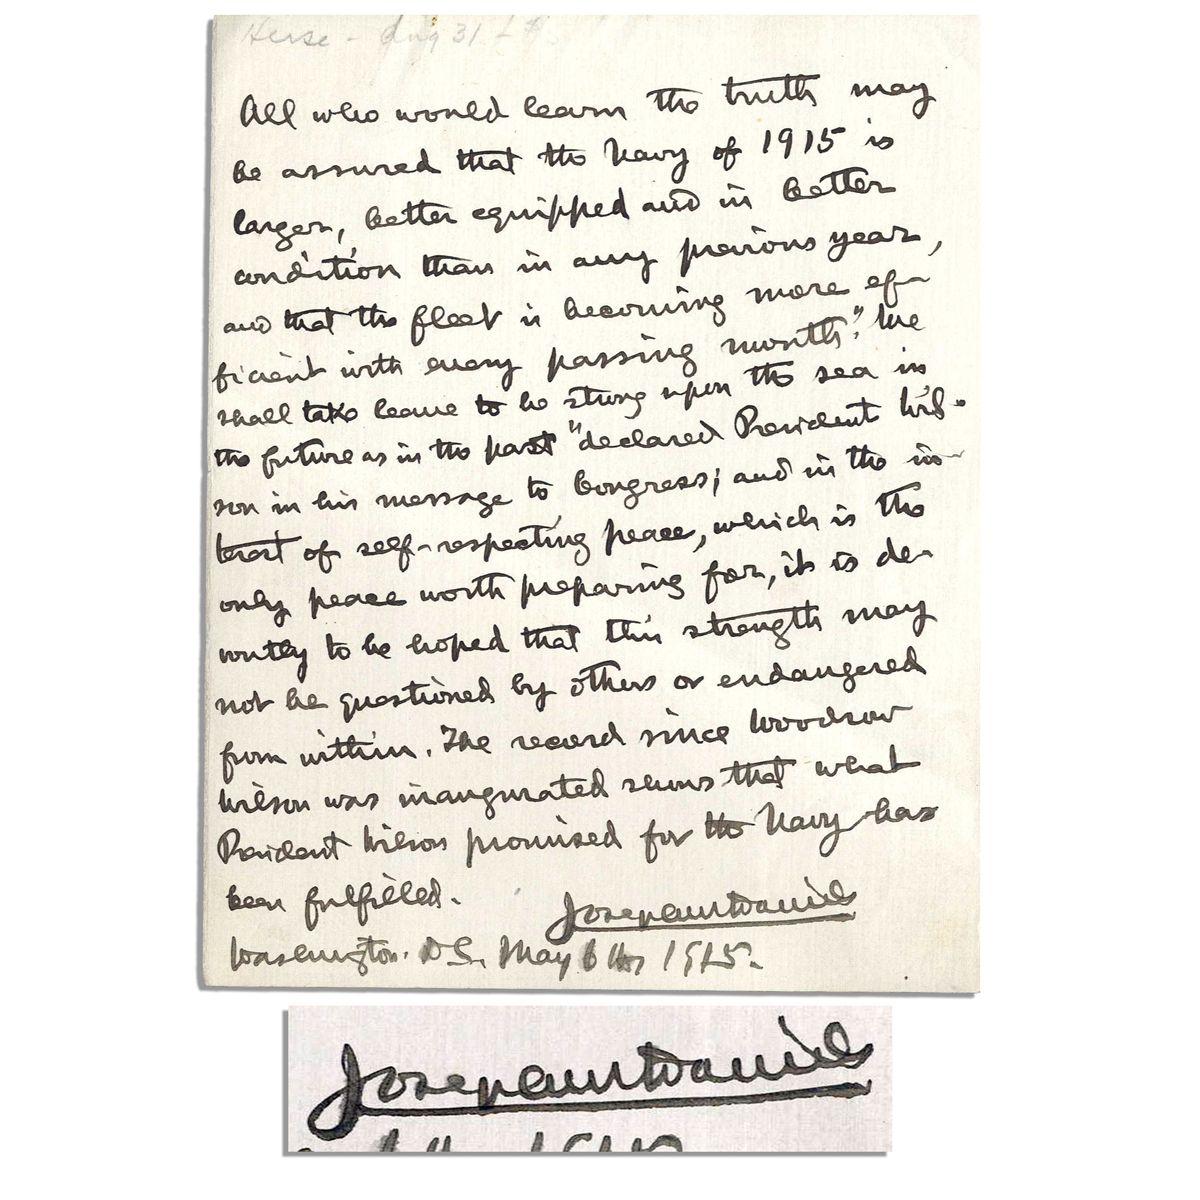 All who would learn the truth may
be assured that the Navy of 1915 is
larger, better equipped and in better
condition than in any previous year,
and that the fleet is becoming more ef-
ficient with every passing month". "We
shall take leave to be strong upon the sea in
the future as in the past" declared President Wil-
son in his message to Congress; and in the in-
terest of self-respecting peace, which is the
only peace worth preparing for, it is de-
voutly to be hoped that this strength may
not be questioned by others or endangered
from within. The record since Woodrow
Wilson was inaugurated shows that what
President Wilson promised for the Navy has
been fulfilled.
Josephus Daniels
Washington. D.C. May 6th, 1915.
Josephus Daniels